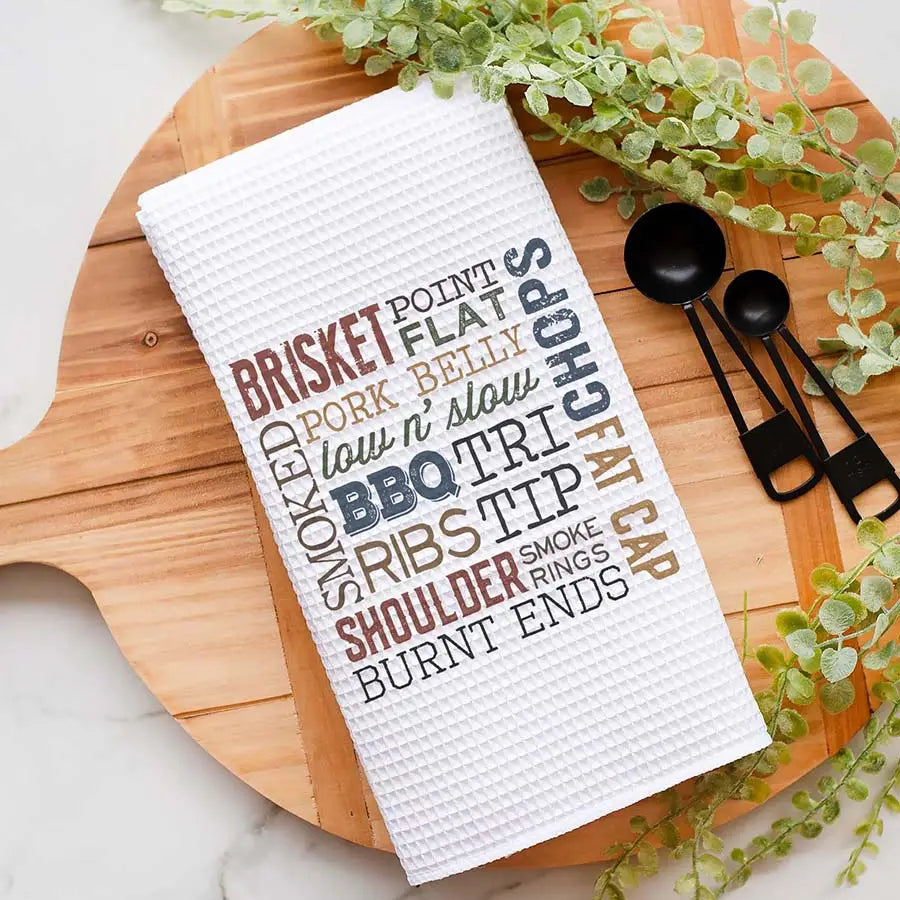 BRISKET
POINT
FLAT
PORK BELLY
low n' slow
SMOKED
BBQ
TRI
TIP
RIBS
SHOULDER
SMOKE
RINGS
BURNT ENDS
CHOPS
FAT CAP